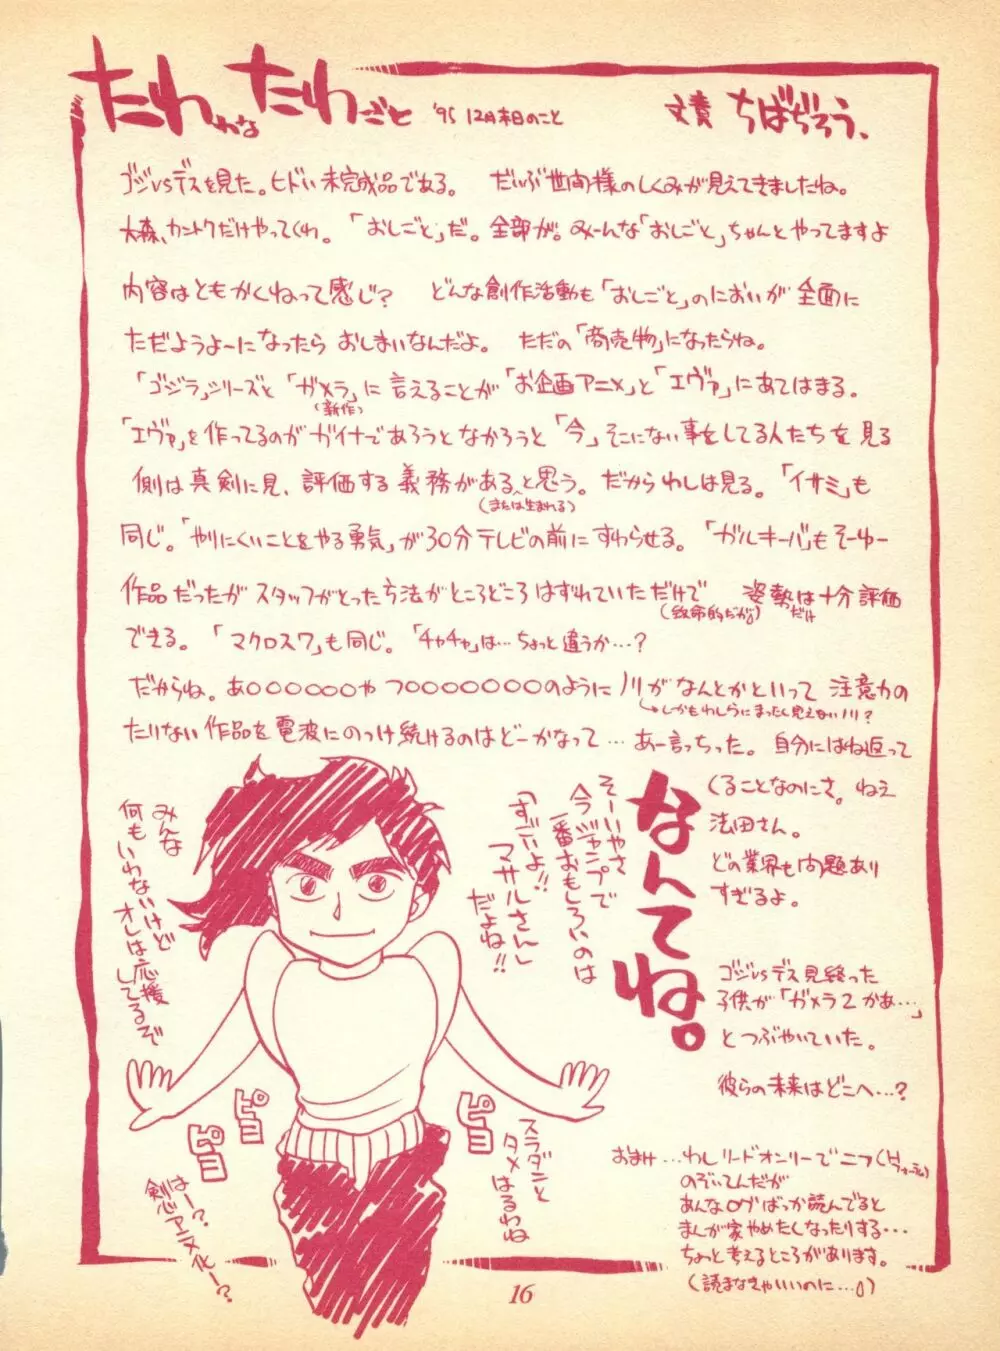 たわわな たわごと '95 12月末日のこと
文責 ちばぢろう、
ゴジVSデスを見た。ヒドい未完成品である。 だいぶ世間様のしくみが見えてきましたね。
大森、カントクだけやってくれ。「おしごと」だ。全部が。みーんな「おしごと」ちゃんとやってますよ
内容はともかくねって感じ? どんな創作活動も「おしごと」のにおいが全面に
ただようよーになったら おしまいなんだよ。 ただの「商売物」になったらね。
「ゴジラ」シリーズと「ガメラ」に言えることが「お企画アニメ」と「エヴァ」にあてはまる。
(新作)
「エヴァ」を作ってるのがガイナであろうとなかろうと「今」そこにない事をしてる人たちを見る
側は真剣に見、評価する義務があると思う。だからわしは見る。「イサミ」も
(または生まれる)
同じ。「やりにくいことをやる勇気」が30分テレビの前にすわらせる。「ガルキーバ」もそーゆー
作品だったがスタッフがとった方法がところどころはずれていただけで 姿勢は十分評価
(致命的だが。) だけ
できる。「マクロス7」も同じ。「チャチャ」は…ちょっと違うか…?
だからね。あ○○○○○○やつ○○○○○○○のようにノリがなんとかといって注意力の
しかもわしらにまったく見えないノリ?
たりない作品を電波にのっけ続けるのはどーかなって…あー言っちった。自分にはね返って
くることなのにさ。ねえ
法田さん。
どの業界も問題あり
すぎるよ。
なんてね。
ゴジVSデス見終った
子供が「ガメラ2かあ…」
とつぶやいていた。
彼らの未来はどこへ…?
そーいやさ
今ジャンプで
一番おもしろいのは
「すごいよ!!
マサルさん」
だよね!!
みんな
何もいわないけど
オレは応援
してるぞ
ピヨ
ピヨ
ピヨ
スラダンと
タメはるわね
はー?
剣心アニメ化ー?
おまけ…わしリードオンリーでニフ(フォーラム)
のぞいてんだが
あんなログばっか読んでると
まんが家やめたくなったりする…
ちょっと考えるところがあります。
(読まなきゃいいのに…。)
16